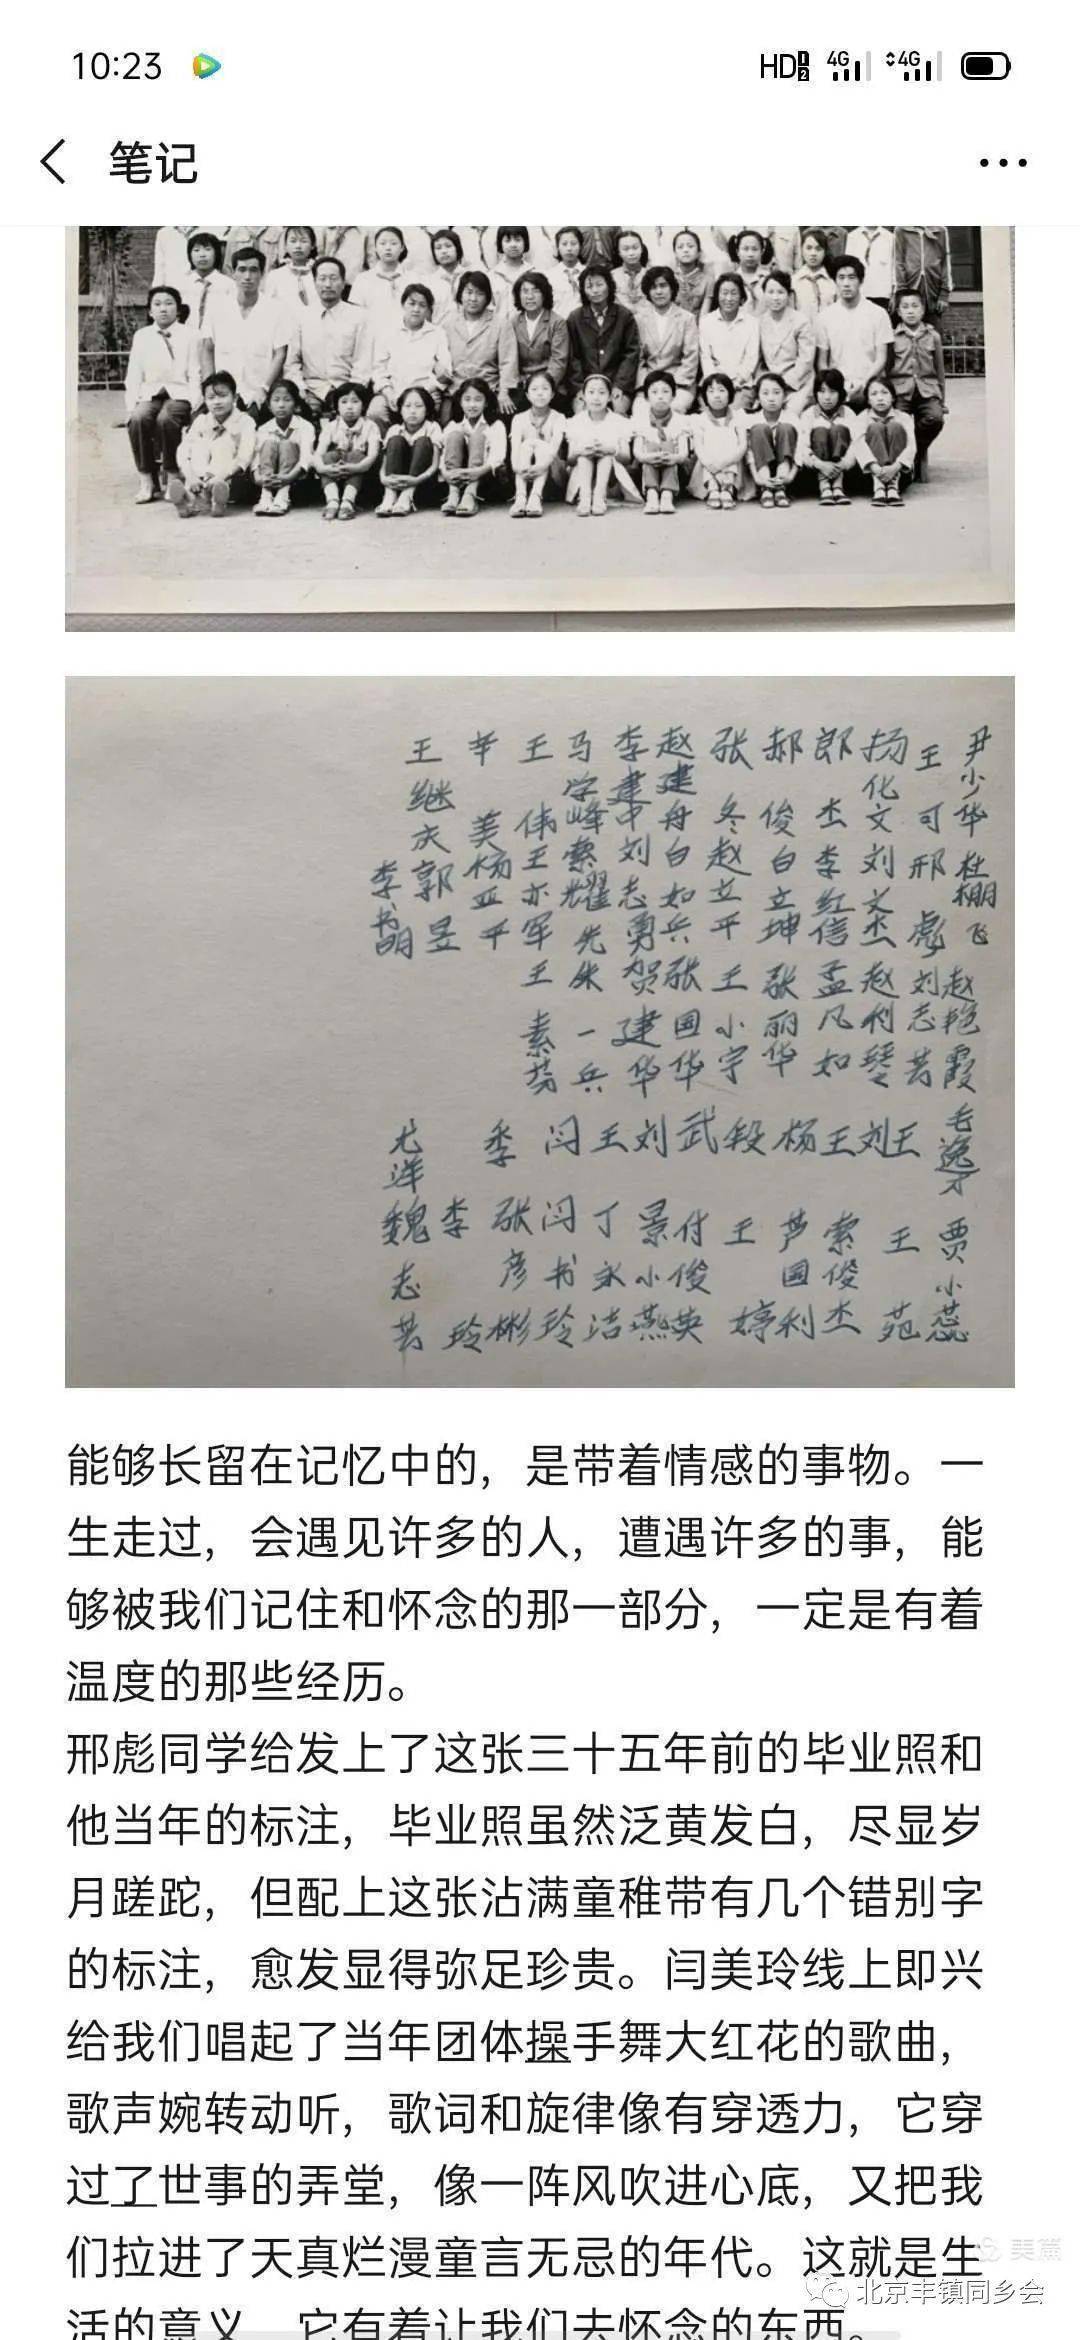 10:23
HD 1 2 4G 4G
笔记
王 辛 王 马 李 赵 张 郝 郎 扬 王 尹
继 学 建 建 化 少
庆 美 伟 峰 中 舟 冬 俊 杰 文 可 华
李 郭 杨 王 索 刘 白 赵 白 李 刘 邢 杜
书 亚 亦 耀 志 如 立 立 红 文 棚
明 昱 平 军 先 勇 兵 平 坤 信 杰 彪 飞
王 朱 贺 张 王 张 孟 赵 刘 赵
素 一 建 国 小 丽 凡 利 志 艳
芳 兵 华 华 宇 华 如 琴 芸 霞
尤 季 闫 王 刘 武 段 杨 王 刘 王 毛
洋 逸
才
魏 李 张 闫 丁 景 付 王 芦 索 王 贾
志 彦 书 永 小 俊 国 俊 小
芸 玲 彬 玲 洁 燕 英 婷 利 杰 苑 蕊
能够长留在记忆中的，是带着情感的事物。一
生走过，会遇见许多的人，遭遇许多的事，能
够被我们记住和怀念的那一部分，一定是有着
温度的那些经历。
邢彪同学给发上了这张三十五年前的毕业照和
他当年的标注，毕业照虽然泛黄发白，尽显岁
月蹉跎，但配上这张沾满童稚带有几个错别字
的标注，愈发显得弥足珍贵。闫美玲线上即兴
给我们唱起了当年团体操手舞大红花的歌曲，
歌声婉转动听，歌词和旋律像有穿透力，它穿
过了世事的弄堂，像一阵风吹进心底，又把我
们拉进了天真烂漫童言无忌的年代。这就是生
活的意义，它有着让我们去怀念的东西。
美篇
北京丰镇同乡会